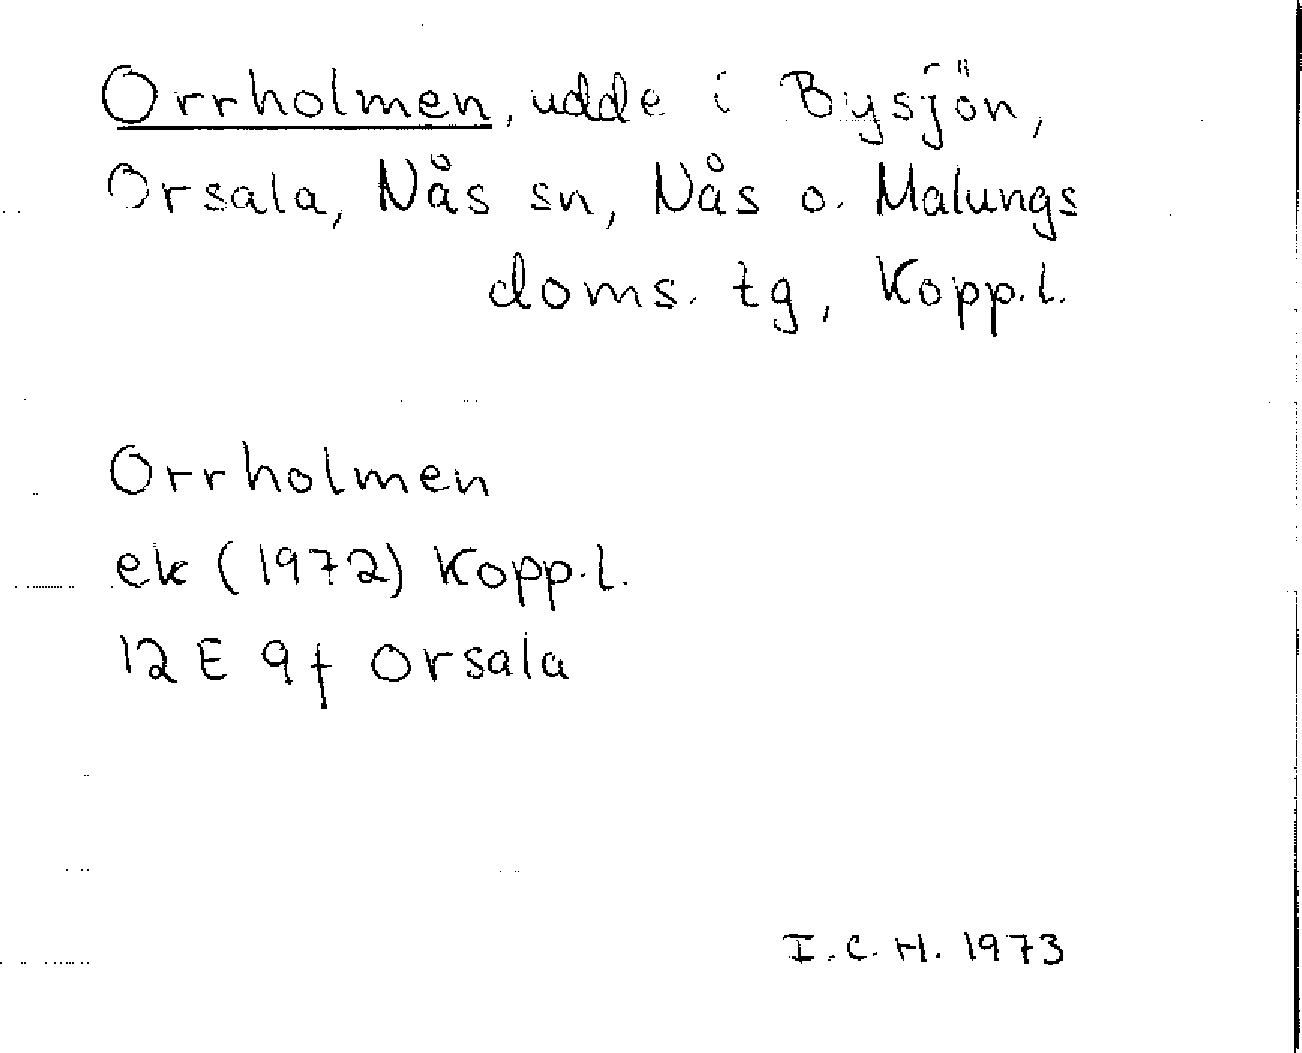 Orrholmen, udde i Bysjön,
Orsala, Nås sn, Nås o. Malungs
doms. tg, Kopp.l.
Orrholmen
ek (1972) Kopp.l.
12 E 9f Orsala
I.C.H. 1973